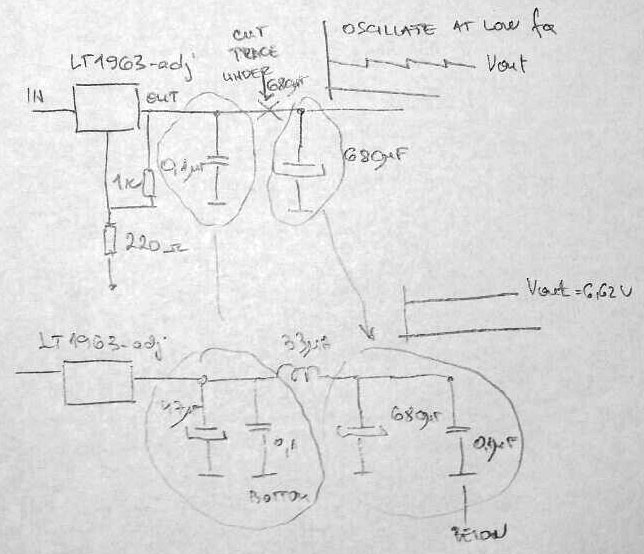 OSCILLATE AT LOW fq
CUT
TRACE
UNDER
680µF
LT1963-adj
Vout
IN
OUT
0,1µF
680µF
1K
220Ω
Vout=6,62V
LT1963-adj
33µH
47µF
0,1
680µF
0,1µF
BOTTOM
BELOW